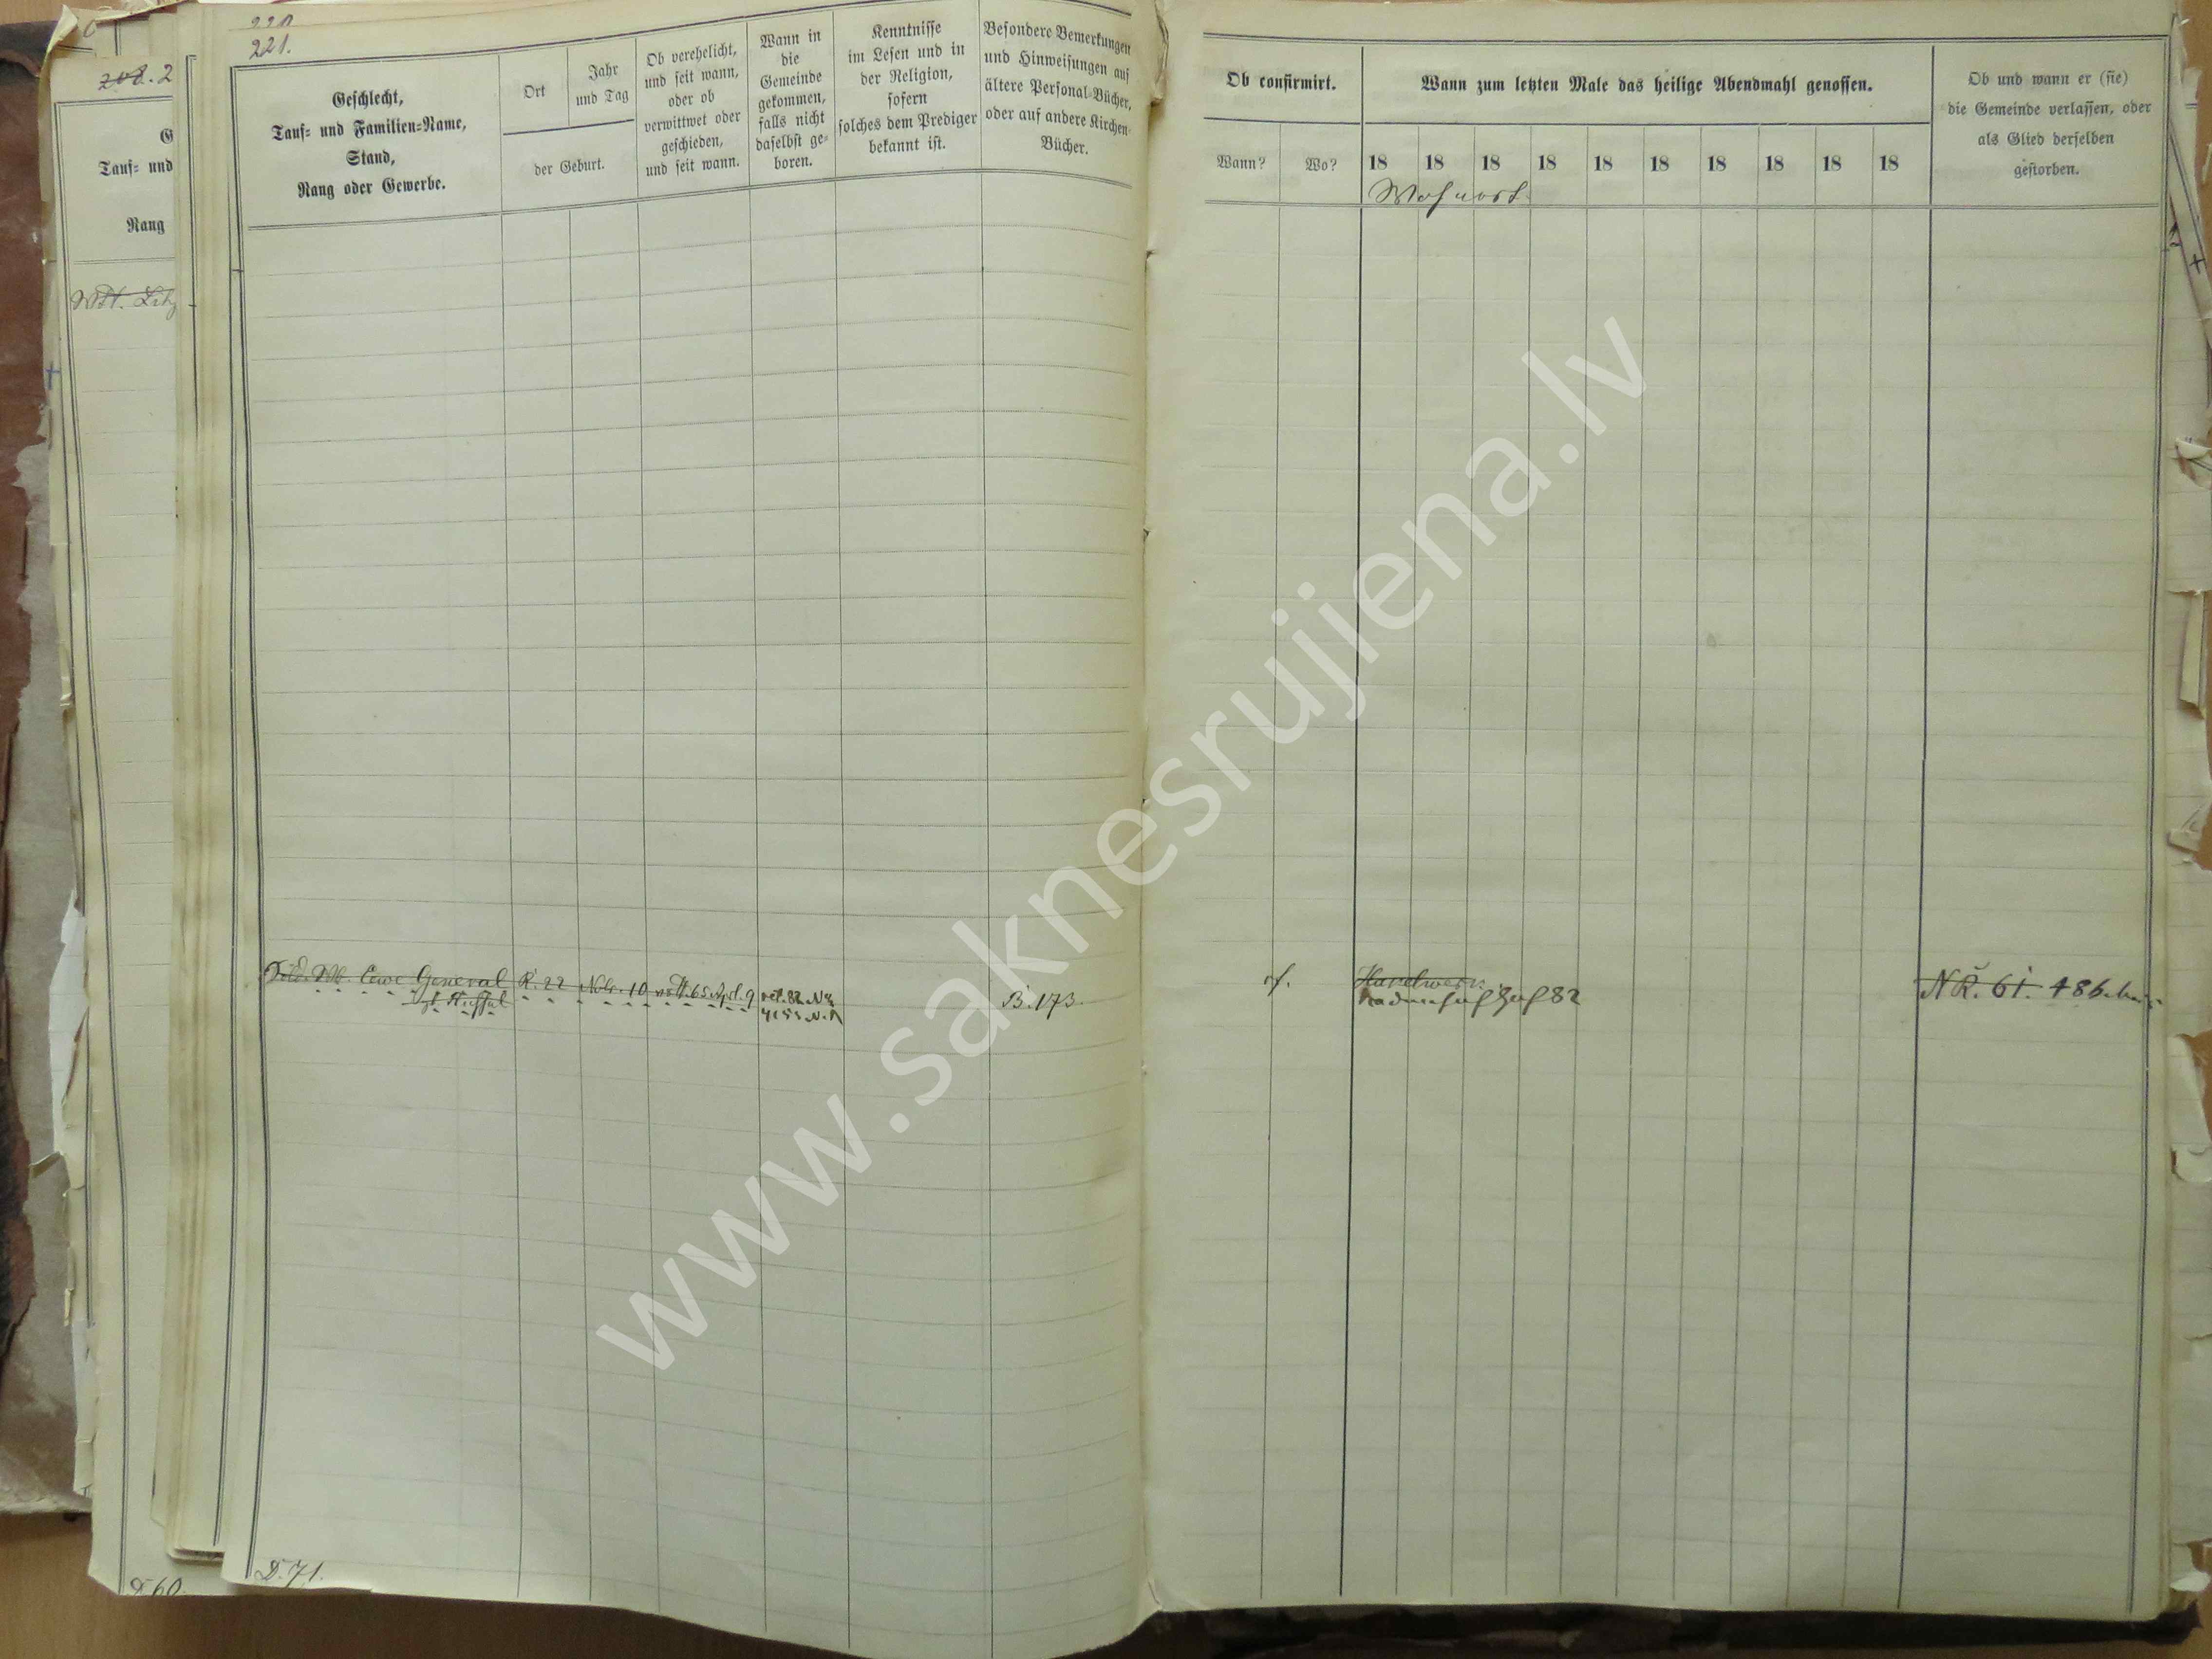 208. 2
G
Tauf= und
Rang
Wtt. Litz
D 60.
220
221.
Geschlecht,
Tauf= und Familien=Name,
Stand,
Rang oder Gewerbe.
Ort
Jahr
und Tag
der Geburt.
Ob verehelicht,
und seit wann,
oder ob
verwittwet oder
geschieden,
und seit wann.
Wann in
die
Gemeinde
gekommen,
falls nicht
daselbst ge=
boren.
Kenntnisse
im Lesen und in
der Religion,
sofern
solches dem Prediger
bekannt ist.
Besondere Bemerkungen
und Hinweisungen auf
ältere Personal=Bücher,
oder auf andere Kirchen=
Bücher.
Sold. Wb. Eewe General R. 22 Nbr. 10 Wtt. 65. Apl. 9
B. 173.
D. 71.
Ob confirmirt.
Wann?
Wo?
Wann zum letzten Male das heilige Abendmahl genossen.
18 18 18 18 18 18 18 18 18 18
Wohnort.
Ob und wann er (sie)
die Gemeinde verlassen, oder
als Glied derselben
gestorben.
cf.
Hof 82
N R. 61. † 86.
www.saknesrujiena.lv